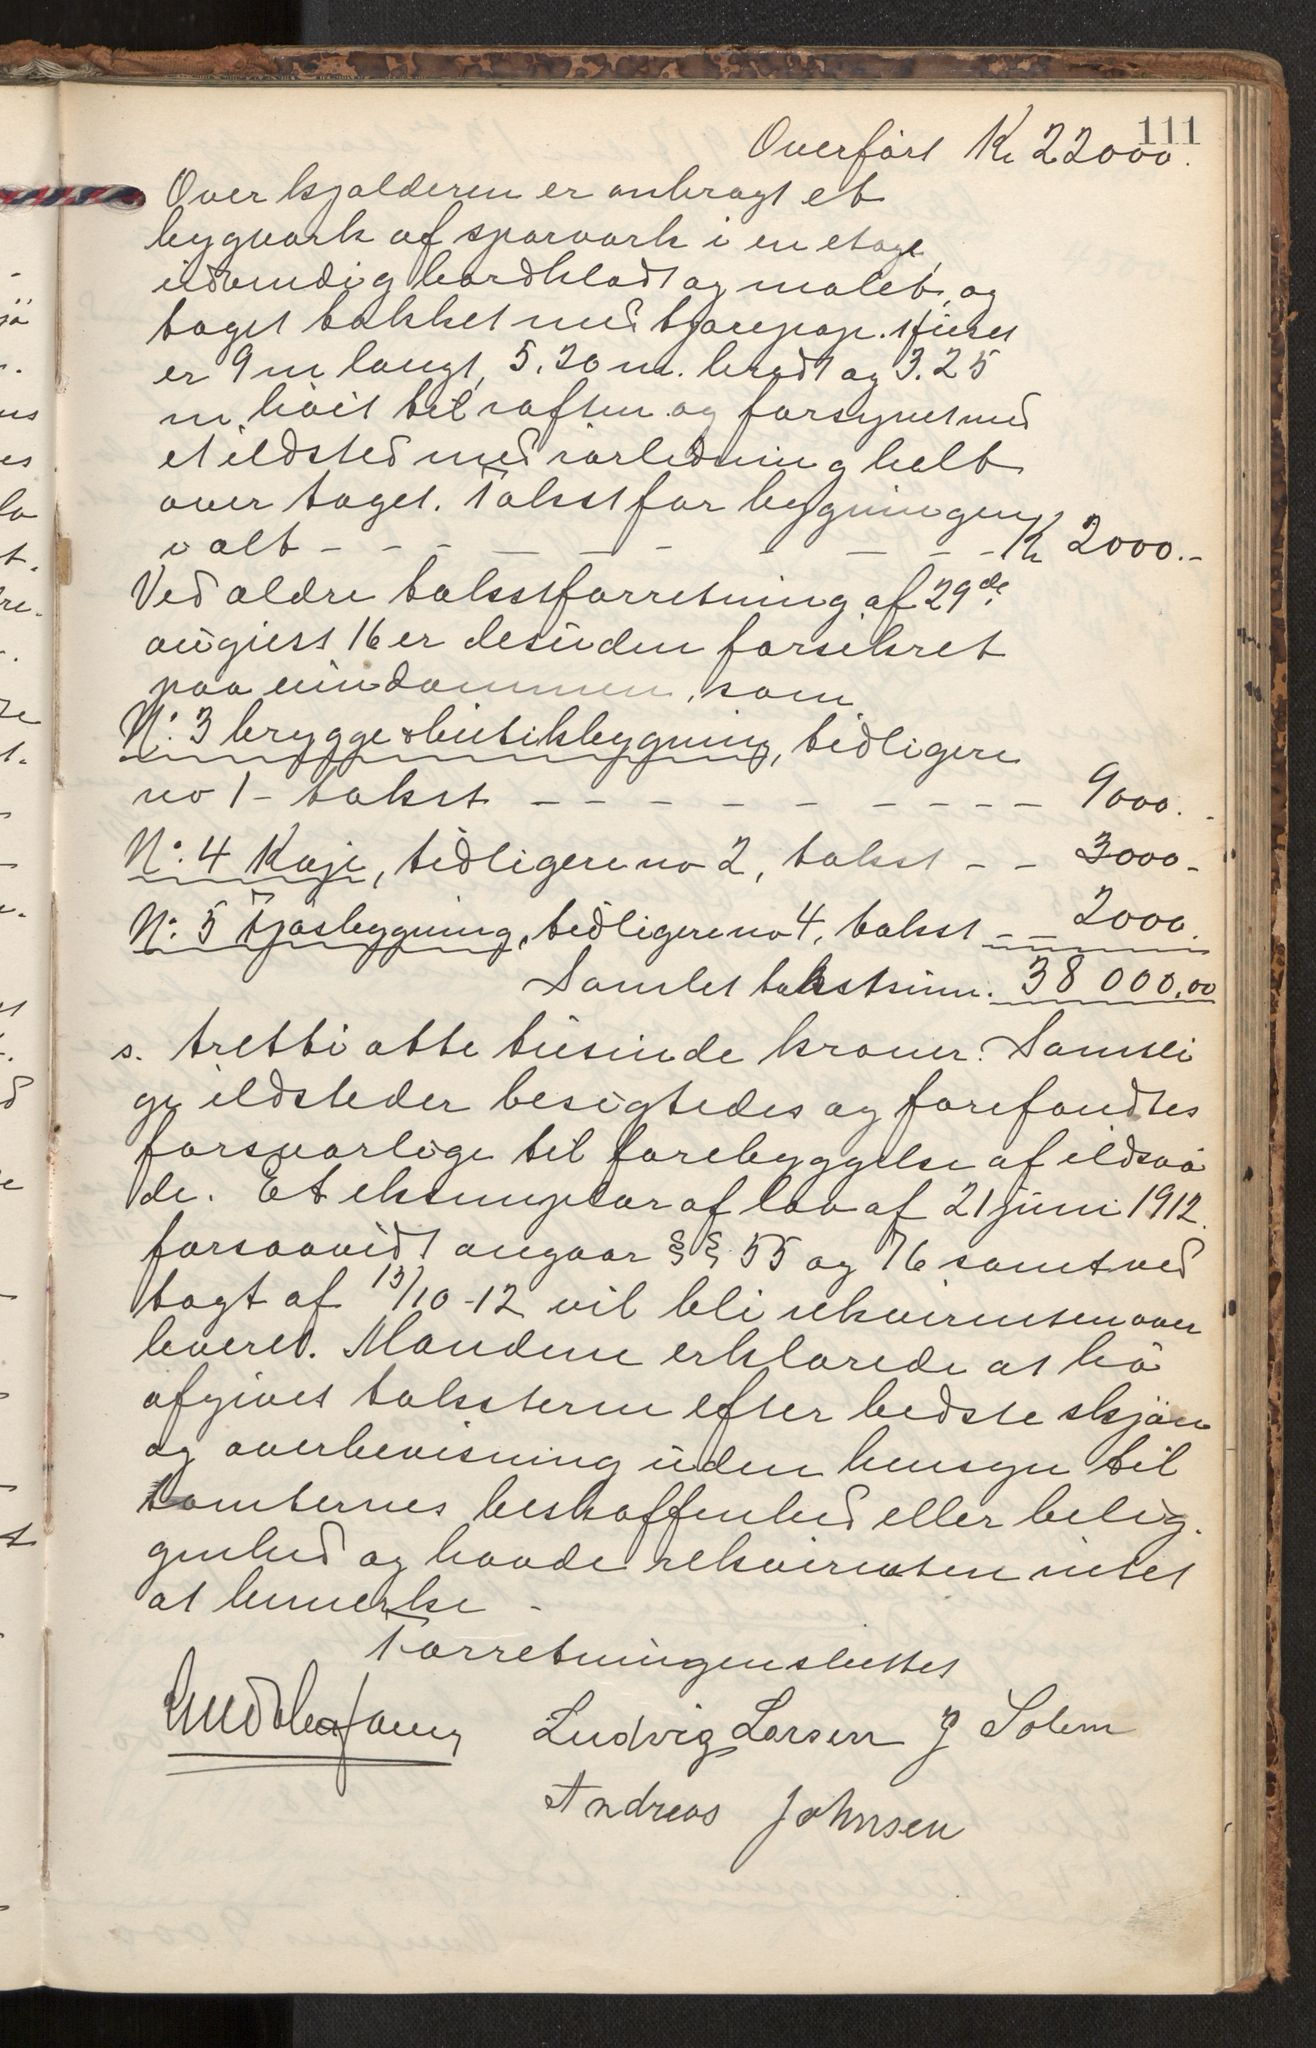 111
Overført Kr 22000.
Over kjælderen er anbragt et
bygverk af sperverk i en etage,
udvendig bordklædt og malet, og
taget tækket med tjærepap. Huset
er 9 m langt, 5.20 m. bredt og 3.25
m høit til raften og forsynet med
et ildsted med rørledning helt
over taget. Takst for bygningen
i alt - - - - - - - - - Kr 2000.-
Ved ældre takstforretning af 29de
august 16 er desuden forsikret
paa eiendommen, som
No. 3 brygge & butikbygning, tidligere
no 1 - takst - - - - - - - - - 9000.-
No. 4 Kaje, tidligere no 2, takst - - 3000-
No. 5 Fjøsbygning, tidligere no 4, takst - - 2000.
Samlet takstsum. 38 000.00
s. tretti otte tusinde kroner. Samtli
ge ildsteder besigtedes og forefandtes
forsvarlige til forebyggelse af ildsvå
de. Et eksemplar af lov af 21 juni 1912
forsaavidt angaar §§ 55 og 76 samt ved
tægt af 13/10-12 vil bli rekvirenten over
leveret. Mændene erklærede at ha
afgivet taksterne efter bedste skjøn
og overbevisning uden hensyn til
tomternes beskaffenhed eller belig-
genhed og havde rekvirenten intet
at bemerke -
Forretningen sluttet
Ludvig Larsen J Solem
Andreas Johnsen